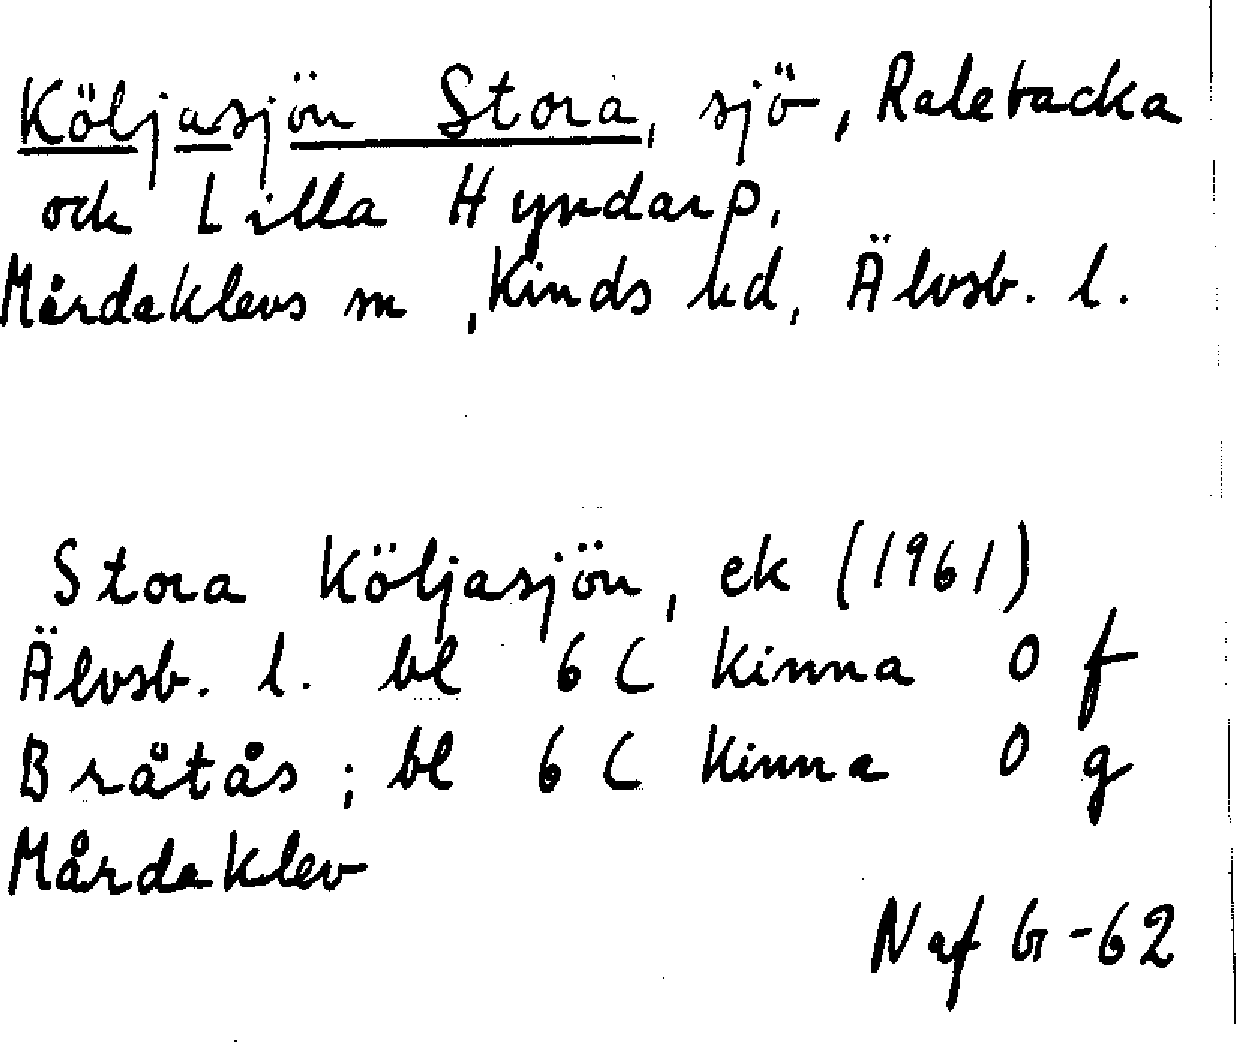 Köljasjön Stora, sjö, Ralebacka
och Lilla Hyndarp,
Mårdaklevs sn, Kinds hd, Älvsb. l.
Stora Köljasjön, ek (1961)
Älvsb. l. bl 6 C Kinna 0 f
Bråtås; bl 6 C Kinna 0 g
Mårdaklev
Naf G-62